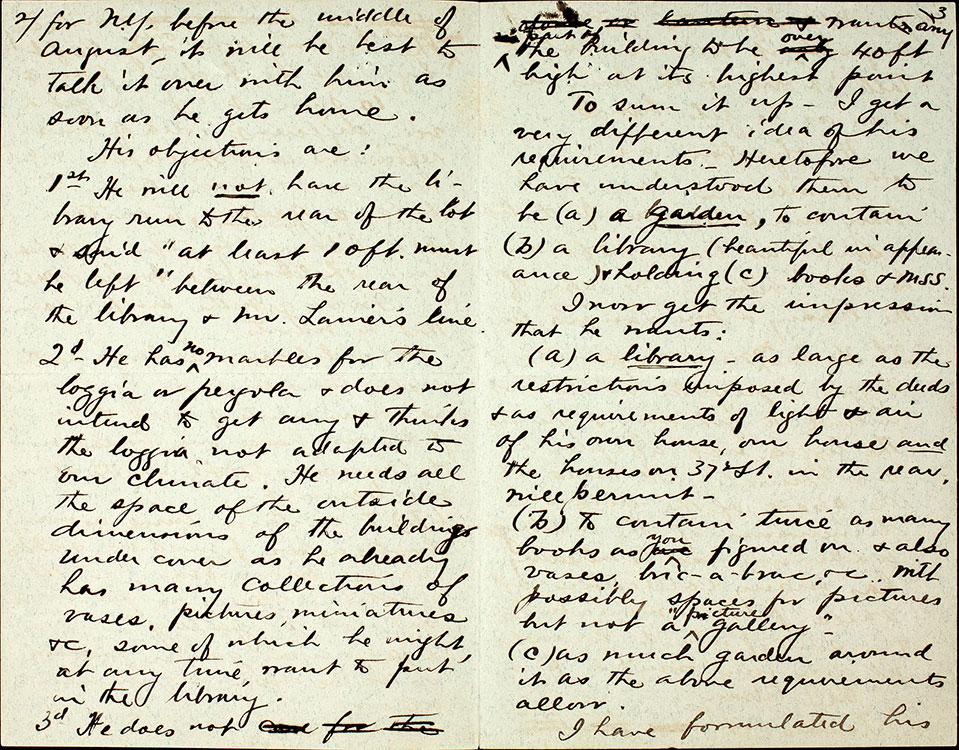 2/ for N.Y, before the middle of
August, it will be best to
talk it over with him as
soon as he gets home.
His objections are:
1st He will not have the li-
brary run to the rear of the lot
& said "at least 10 ft. must
be left" between the rear of
the library & Mr. Lanier's line.
2d He has no marbles for the
loggia or pergola & does not
intend to get any & thinks
the loggia not adapted to
our climate. He needs all
the space of the outside
dimensions of the buildings
under cover as he already
has many collections of
vases, pictures, miniatures
&c, some of which he might,
at any time, want to put
in the library.
3d He does not care for the
3
stone or want any
part of
the building to be over 40 ft
high at its highest point
To sum it up – I get a
very different idea of his
requirements. – Heretofore we
have understood them to
be (a) a garden, to contain
(b) a library (beautiful in appear-
ance) & holding (c) books & MSS.
I now get the impression
that he wants:
(a) a library – as large as the
restrictions imposed by the deeds
& as requirements of light & air
of his own house, our house and
the houses on 37th St. in the rear,
will permit –
(b) to contain twice as many
books as you figured on & also
vases, bric-a-brac, &c., with
possibly spaces for pictures
but not a "picture gallery" –
(c) as much garden around
it as the above requirements
allow.
I have formulated his